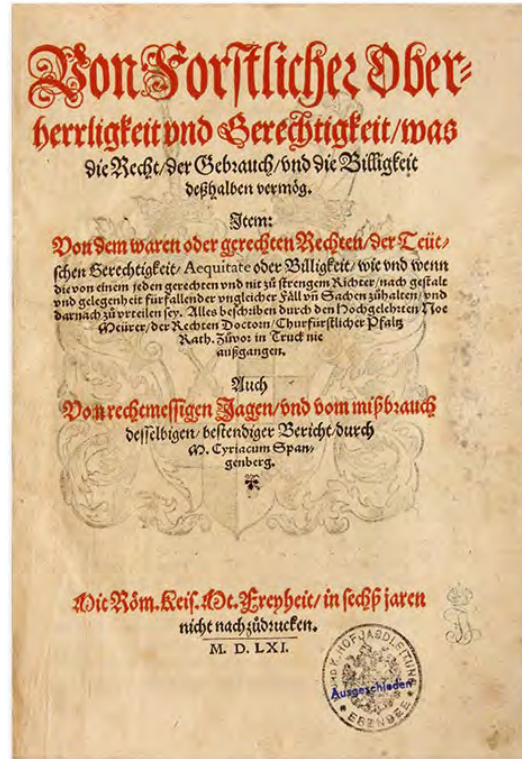 Von Forstlicher Ober⸗
herrligkeit vnd Gerechtigkeit/was
die Recht/der Gebrauch/vnd die Billigkeit
deßhalben vermög.
Item:
Von dem waren oder gerechten Rechten/der Teüt⸗
schen Gerechtigkeit/Aequitate oder Billigkeit/wie vnd wenn
die von einem jeden gerechten vnd nit zů strengem Richter/nach gestalt
vnd gelegenheit fürfallender vngleicher Fäll vñ Sachen zůhalten/vnd
darnach zů vrteilen sey. Alles beschriben durch den Hochgelehrten Noe
Meürer/der Rechten Doctorn/Churfürstlicher Pfaltz
Rath. Zůvor in Truck nie
außgangen.
Auch
Von rechtmessigen Jagen/vnd vom mißbrauch
desselbigen/bestendiger Bericht/durch
M. Cyriacum Span⸗
genberg.
Mit Röm. Keis. Mt. Freyheit/in sechß jaren
nicht nachzůdrucken.
M. D. LXI.
K. HOFJAGDLEITUNG
Ausgeschieden
EBENSEE